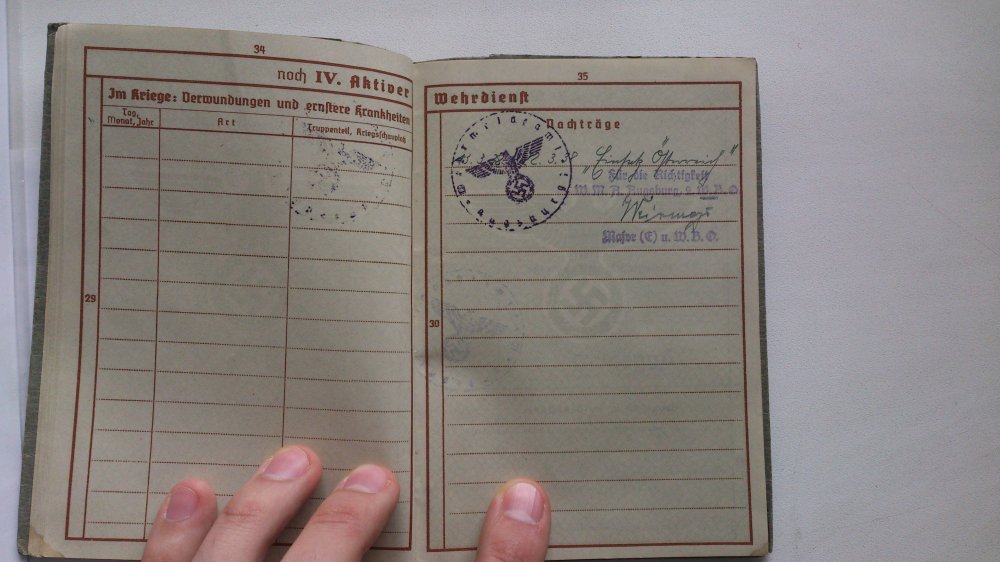 34
noch IV. Aktiver
Im Kriege: Verwundungen und ernstere Krankheiten
Tag, Monat, Jahr
Art
Truppenteil, Kriegsschauplatz
29
35
Wehrdienst
Nachträge
3.38 "Einsatz Österreich"
Für die Richtigkeit
W. M. A. Augsburg, W. B. O.
Major (E) u. W. B. O.
Wehrmeldeamt
Augsburg
30